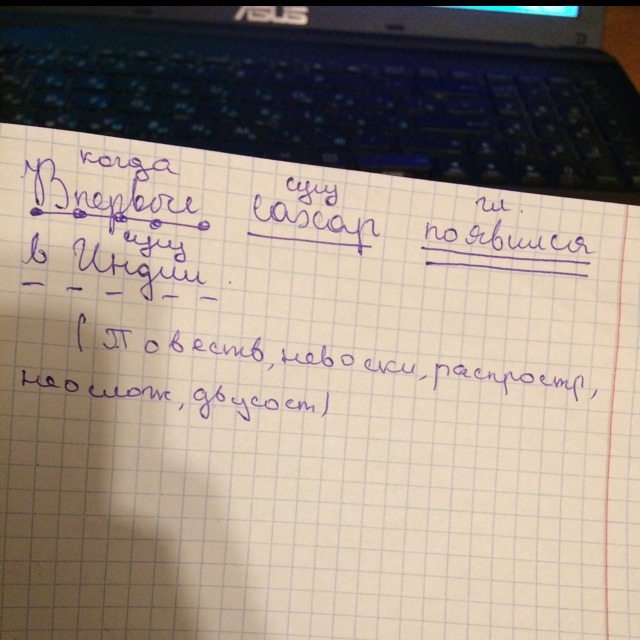 ASUS
когда сущ гл.
Впервые сахар появился
сущ
в Индии.
(Повеств, невоскл, распростр,
неослож, двусост)